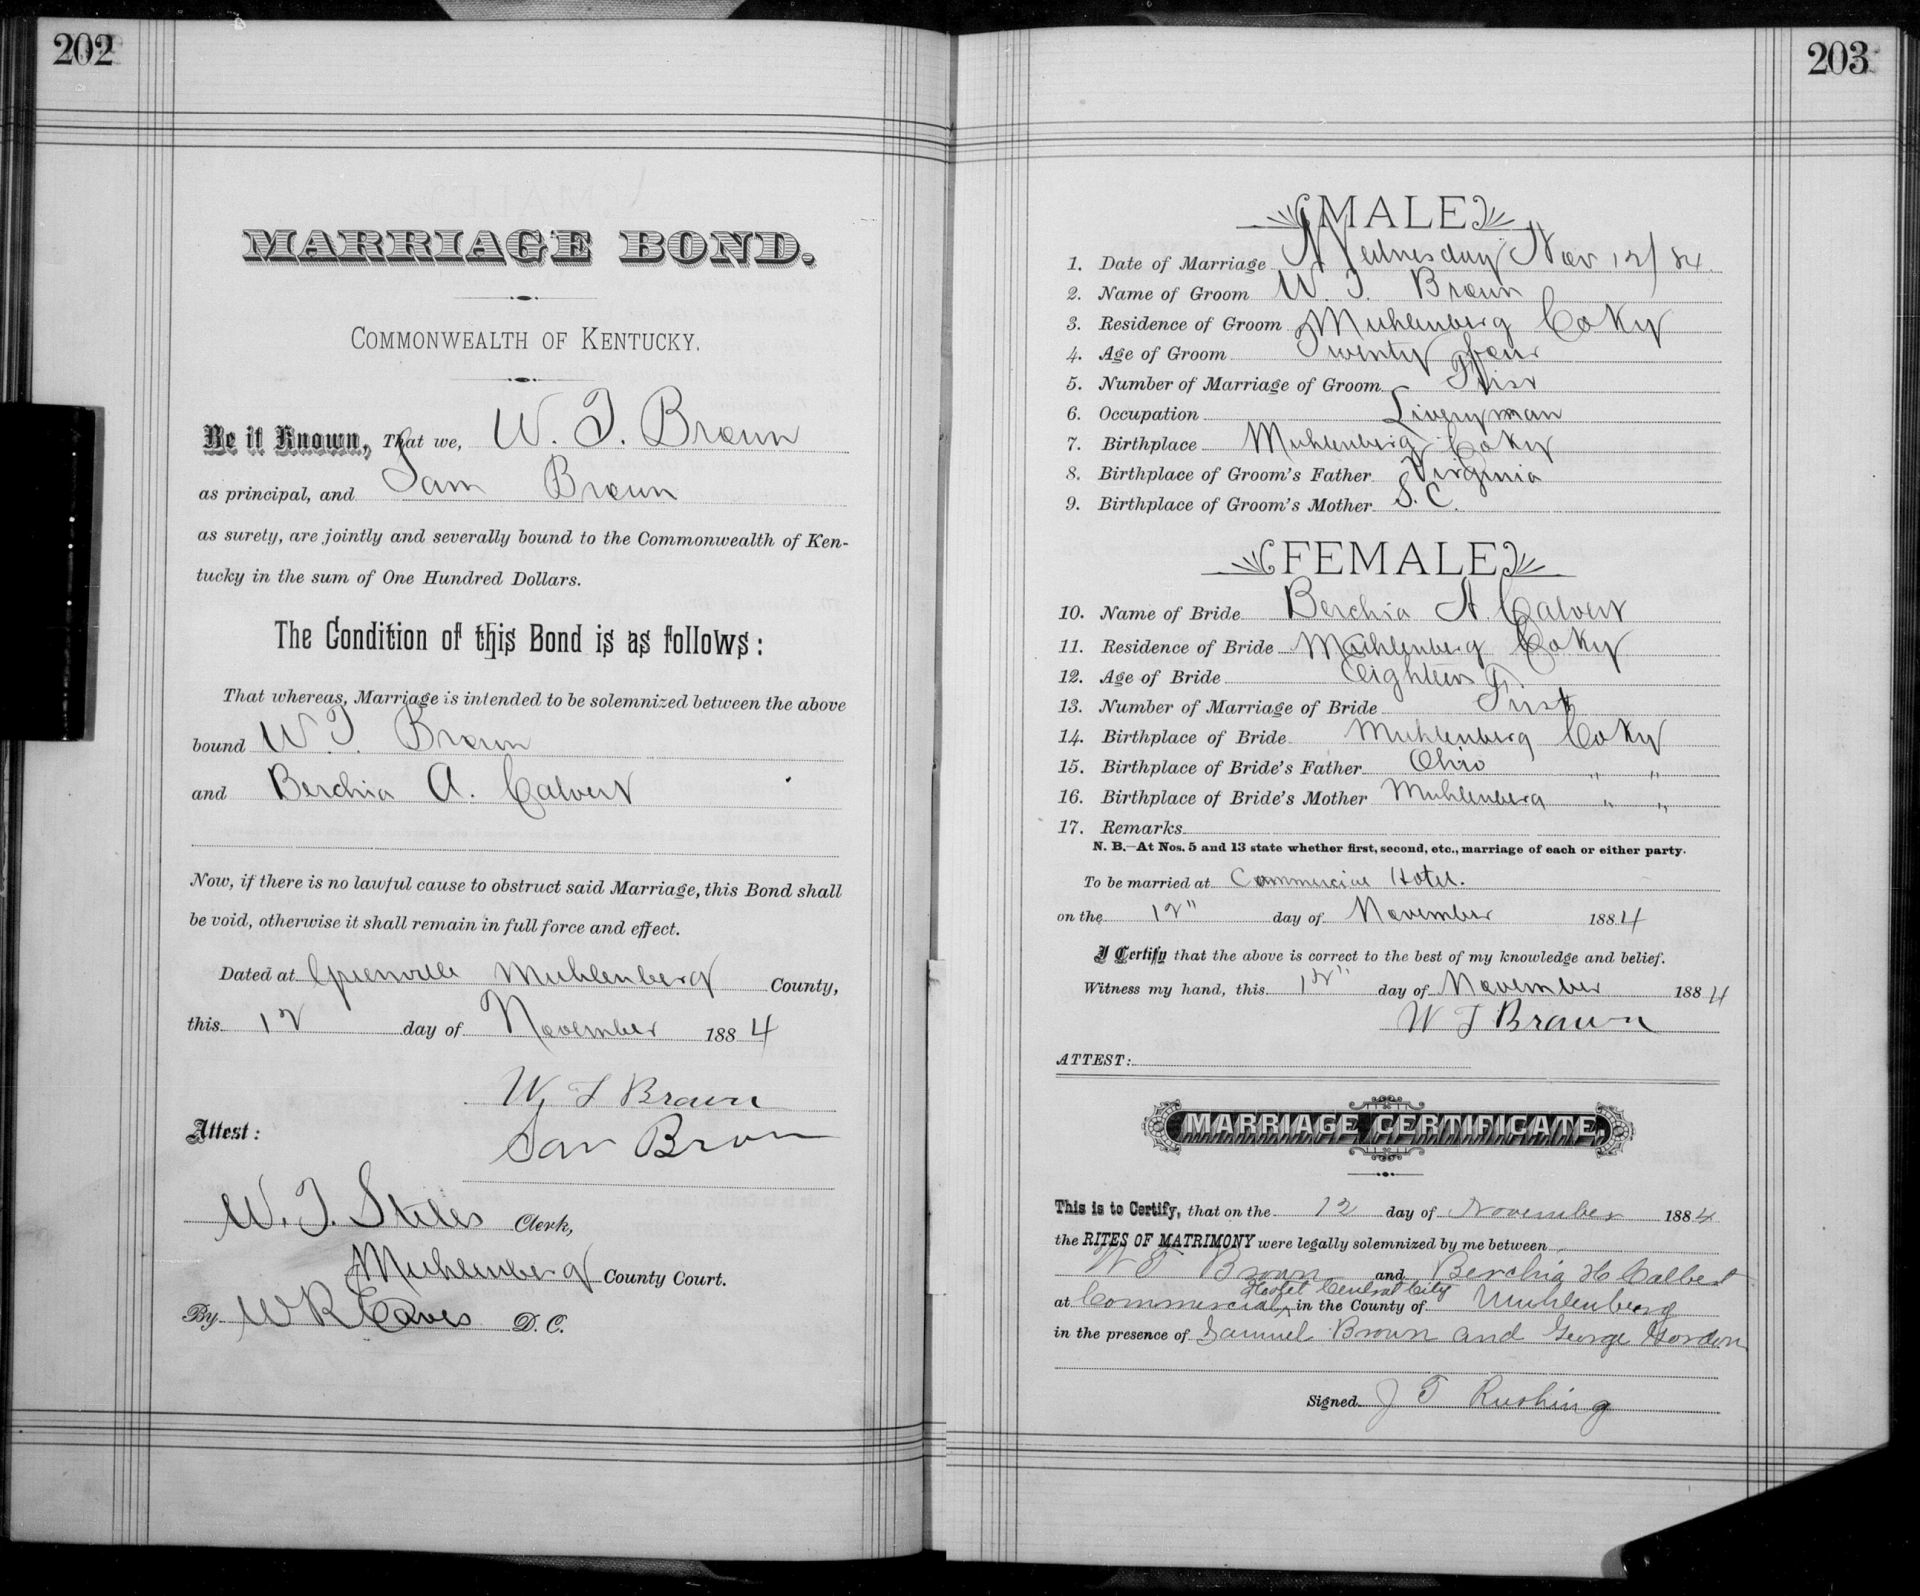 202
MARRIAGE BOND.
COMMONWEALTH OF KENTUCKY.
Be it Known, That we, W. T. Brown
as principal, and Sam Brown
as surety, are jointly and severally bound to the Commonwealth of Ken-
tucky in the sum of One Hundred Dollars.
The Condition of this Bond is as follows:
That whereas, Marriage is intended to be solemnized between the above
bound W T. Brown
and Berchia A. Calvert
Now, if there is no lawful cause to obstruct said Marriage, this Bond shall
be void, otherwise it shall remain in full force and effect.
Dated at Greenville Muhlenberg County,
this 12 day of November 1884
W, T Brown
Attest:
Sam Brown
W. T. Stiles Clerk,
Muhlenberg County Court.
By W R Eaves D. C.
203
MALE
1. Date of Marriage Wednesday Nov 12/84.
2. Name of Groom W. T. Brown
3. Residence of Groom Muhlenberg Co Ky
4. Age of Groom Twenty four
5. Number of Marriage of Groom First
6. Occupation Liveryman
7. Birthplace Muhlenberg Co Ky
8. Birthplace of Groom's Father Virginia
9. Birthplace of Groom's Mother S. C.
FEMALE
10. Name of Bride Berchia A. Calvert
11. Residence of Bride Muhlenberg Co Ky
12. Age of Bride Eighteen
13. Number of Marriage of Bride First
14. Birthplace of Bride Muhlenberg Co Ky
15. Birthplace of Bride's Father Ohio " "
16. Birthplace of Bride's Mother Muhlenberg " "
17. Remarks
N. B.—At Nos. 5 and 13 state whether first, second, etc., marriage of each or either party.
To be married at Commercial Hotel.
on the 12" day of November 1884
I Certify that the above is correct to the best of my knowledge and belief.
Witness my hand, this 12" day of November 1884
W T Brown
ATTEST:
MARRIAGE CERTIFICATE.
This is to Certify, that on the 12 day of November 1884
the RITES OF MATRIMONY were legally solemnized by me between
W T Brown and Berchia H Calbert
Hotel Central City
at Commercial in the County of Muhlenberg
in the presence of Samuel Brown and George Gordon
Signed J T Rushing